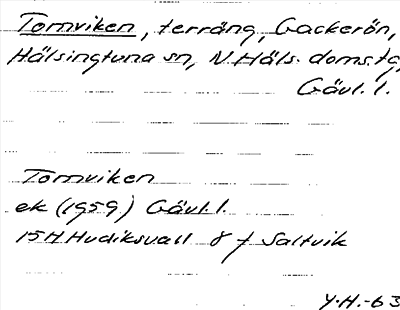 Tomviken, terräng, Gackerön,
Hälsingtuna sn, N. Häls. doms.tg,
Gävl. l.
Tomviken
ek (1959) Gävl. l.
15H Hudiksvall 8 f Saltvik
Y.H.-63